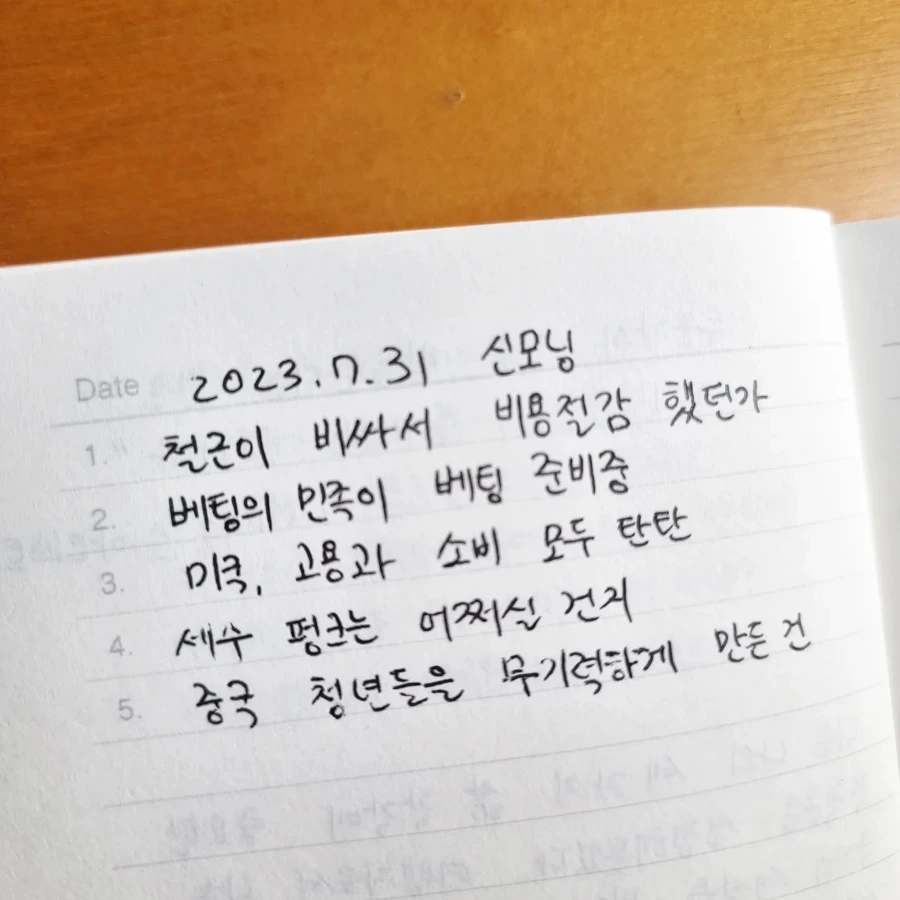 Date 2023.7.31 신모닝
1. 철근이 비싸서 비용절감 했던가
2. 베팅의 민족이 베팅 준비중
3. 미국, 고용과 소비 모두 탄탄
4. 세수 펑크는 어쩌실 건지
5. 중국 청년들을 무기력하게 만든 건